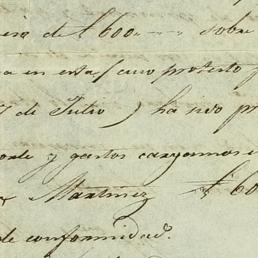 de $ 600 sobre
en esta cuyo protesto
de Julio) ha sido
y gastos cargamos
Martinez $ 60
de conformidad.